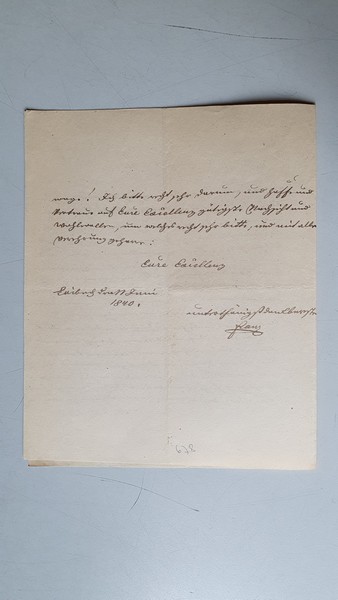 wage! Ich bitte recht sehr darum, und hoffe und
vertraue auf Eure Excellenz gütigste Nachsicht und
Wohlwollen, um welches recht sehr bitte, und mit aller
Verehrung geharre:
Eure Excellenz
Laibach den Juni
1840.
unterthänigst dankbarster